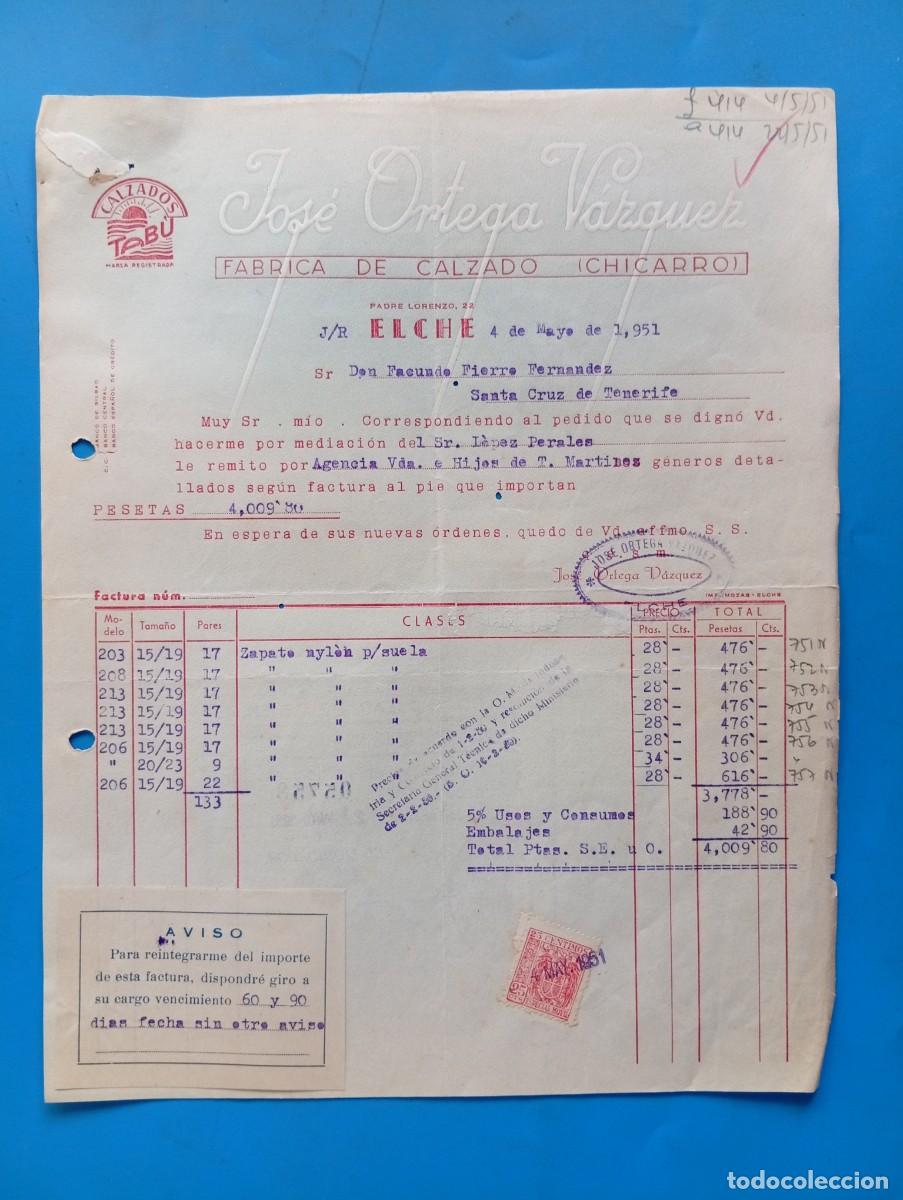 f 414 4/5/51
a 414 22/5/51
CALZADOS
TABÚ
MARCA REGISTRADA
José Ortega Vázquez
FABRICA DE CALZADO (CHICARRO)
PADRE LORENZO, 22
J/R ELCHE 4 de Mayo de 1,951
C.C. BANCO DE BILBAO
BANCO CENTRAL
BANCO ESPAÑOL DE CRÉDITO
Sr Don Facundo Fierro Fernandez
Santa Cruz de Tenerife
Muy Sr. mío. Correspondiendo al pedido que se dignó Vd.
hacerme por mediación del Sr. Lòpez Perales
le remito por Agencia Vda. e Hijos de T. Martinez géneros deta-
llados según factura al pie que importan
PESETAS 4,009`80
En espera de sus nuevas órdenes, quedo de Vd. affmo. S. S.
s. m.
José Ortega Vázquez
JOSE ORTEGA VAZQUEZ
ELCHE
Factura núm.
IMP. MOZAS-ELCHE
Modelo Tamaño Pares CLASES PRECIO TOTAL
Ptas. Cts. Pesetas Cts.
203 15/19 17 Zapato nylòn p/suela 28`- 476`- 751N
208 15/19 17 " " " 28`- 476`- 752N
213 15/19 17 " " " 28`- 476`- 753N
213 15/19 17 " " " 28`- 476`- 754 N
213 15/19 17 " " " 28`- 476`- 755 N
206 15/19 17 " " " 28`- 476`- 756 N
" 20/23 9 " " " 34`- 306`- "
206 15/19 22 " " " 28`- 616`- 757 N
133 3,778`-
5% Usos y Consumos 188`90
Embalajes 42`90
Total Ptas. S.E. u O. 4,009`80
Secretario General Técnica de dicho Ministerio
05758
AVISO
Para reintegrarme del importe
de esta factura, dispondré giro a
su cargo vencimiento 60 y 90
dias fecha sin otro aviso
25 CENTIMOS
25
4 MAY. 1951
todocoleccion